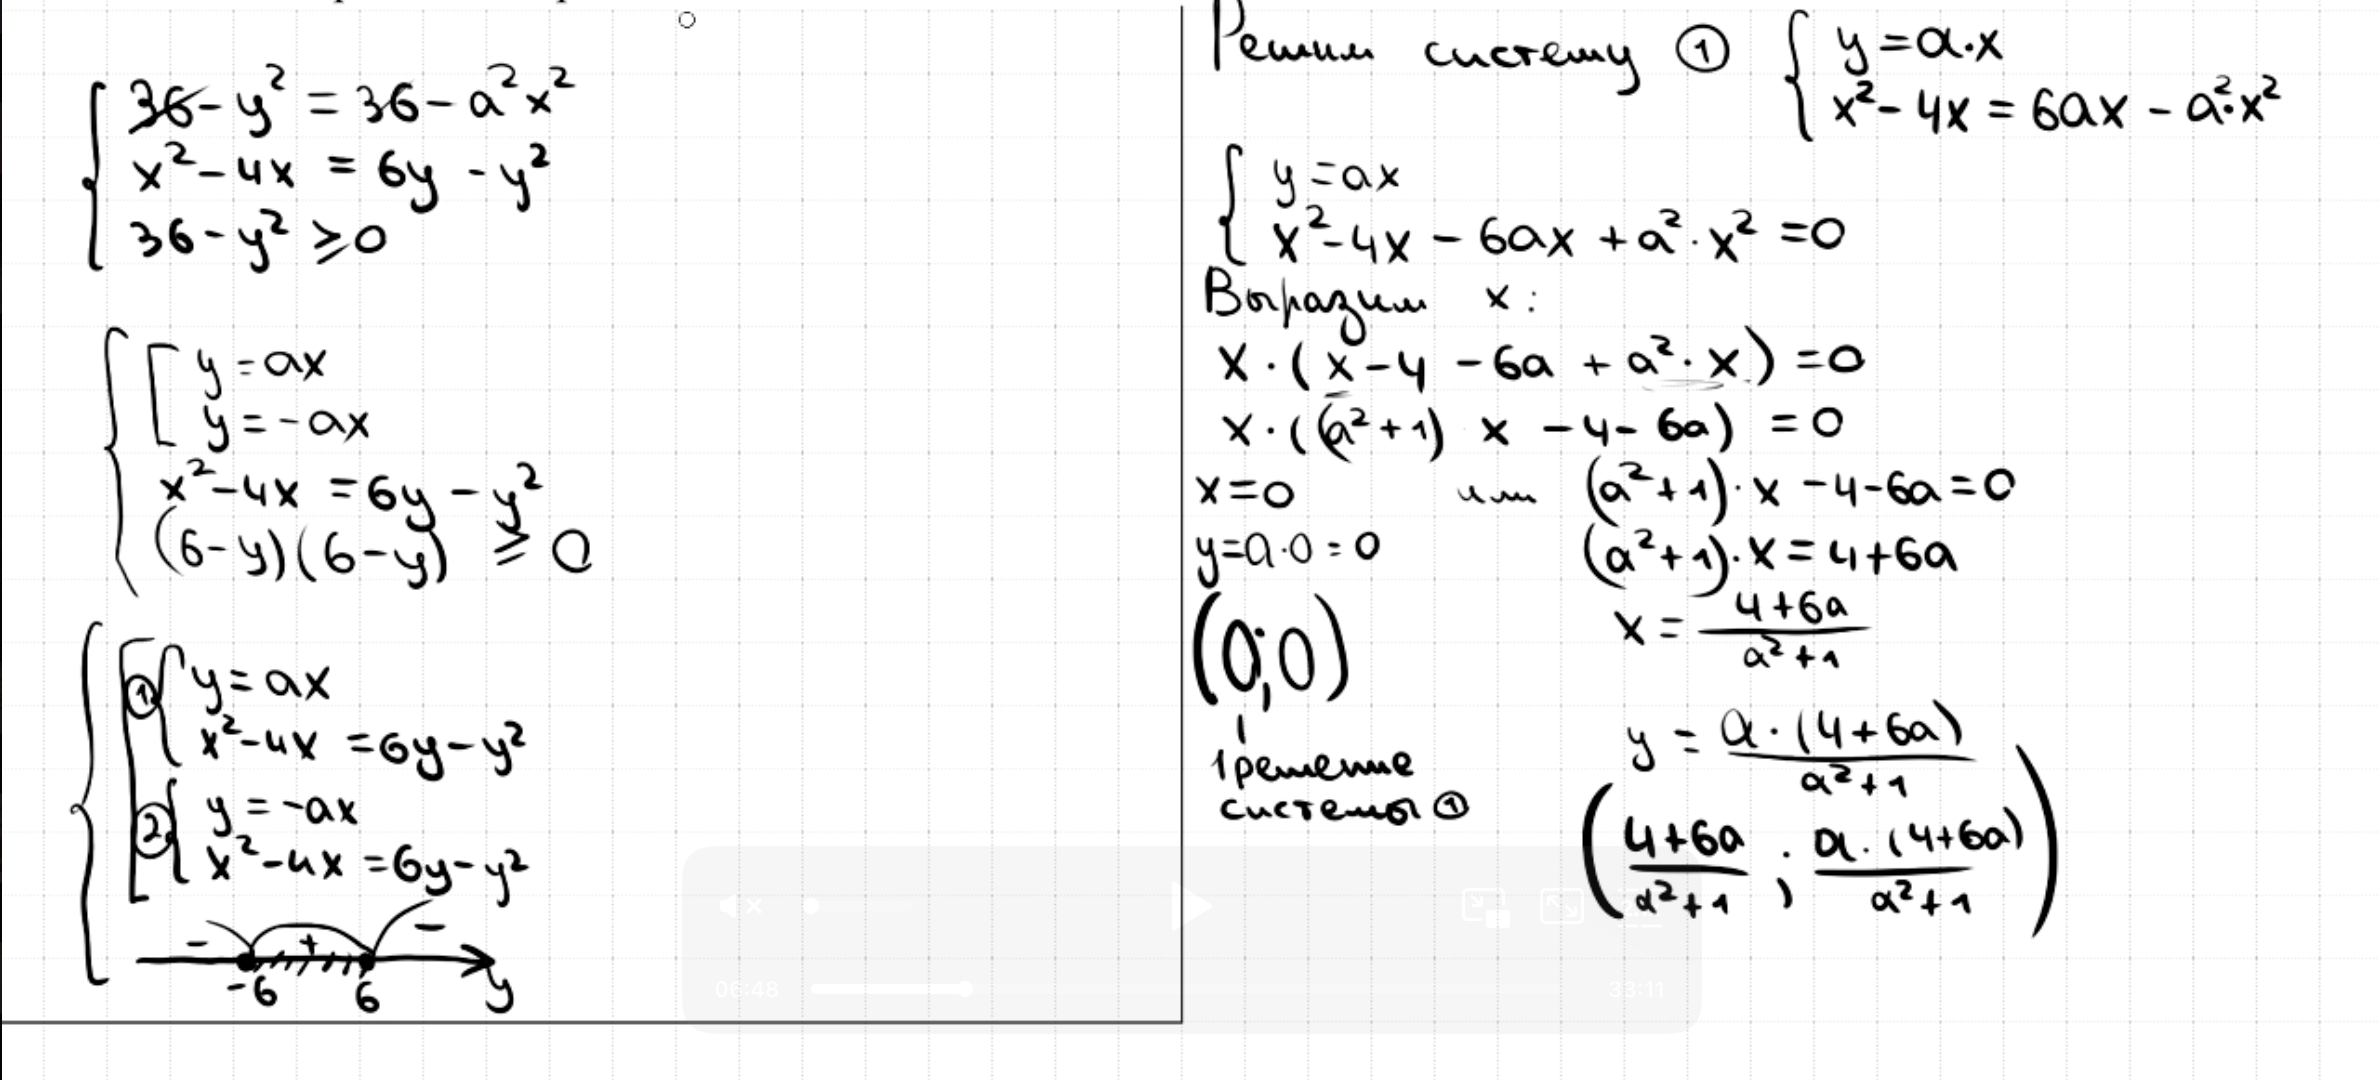 36 - y² = 36 - a²x²
x² - 4x = 6y - y²
36 - y² ⩾ 0
y = ax
y = -ax
x² - 4x = 6y - y²
(6-y)(6-y) ⩾ 0
① y = ax
x² - 4x = 6y - y²
② y = -ax
x² - 4x = 6y - y²
- + -
-6 6 y
Решим систему ① { y = a·x
x² - 4x = 6ax - a²·x²
{ y = ax
x² - 4x - 6ax + a²·x² = 0
Выразим x:
x·(x - 4 - 6a + a²·x) = 0
x·((a²+1) x - 4 - 6a) = 0
x = 0 или (a²+1)·x - 4 - 6a = 0
y = a·0 = 0 (a²+1)·x = 4+6a
x = (4+6a)/(a²+1)
(0;0)
y = a·(4+6a)/(a²+1)
1 решение
системы ①
((4+6a)/(a²+1) ; a·(4+6a)/(a²+1))
06:48 33:11